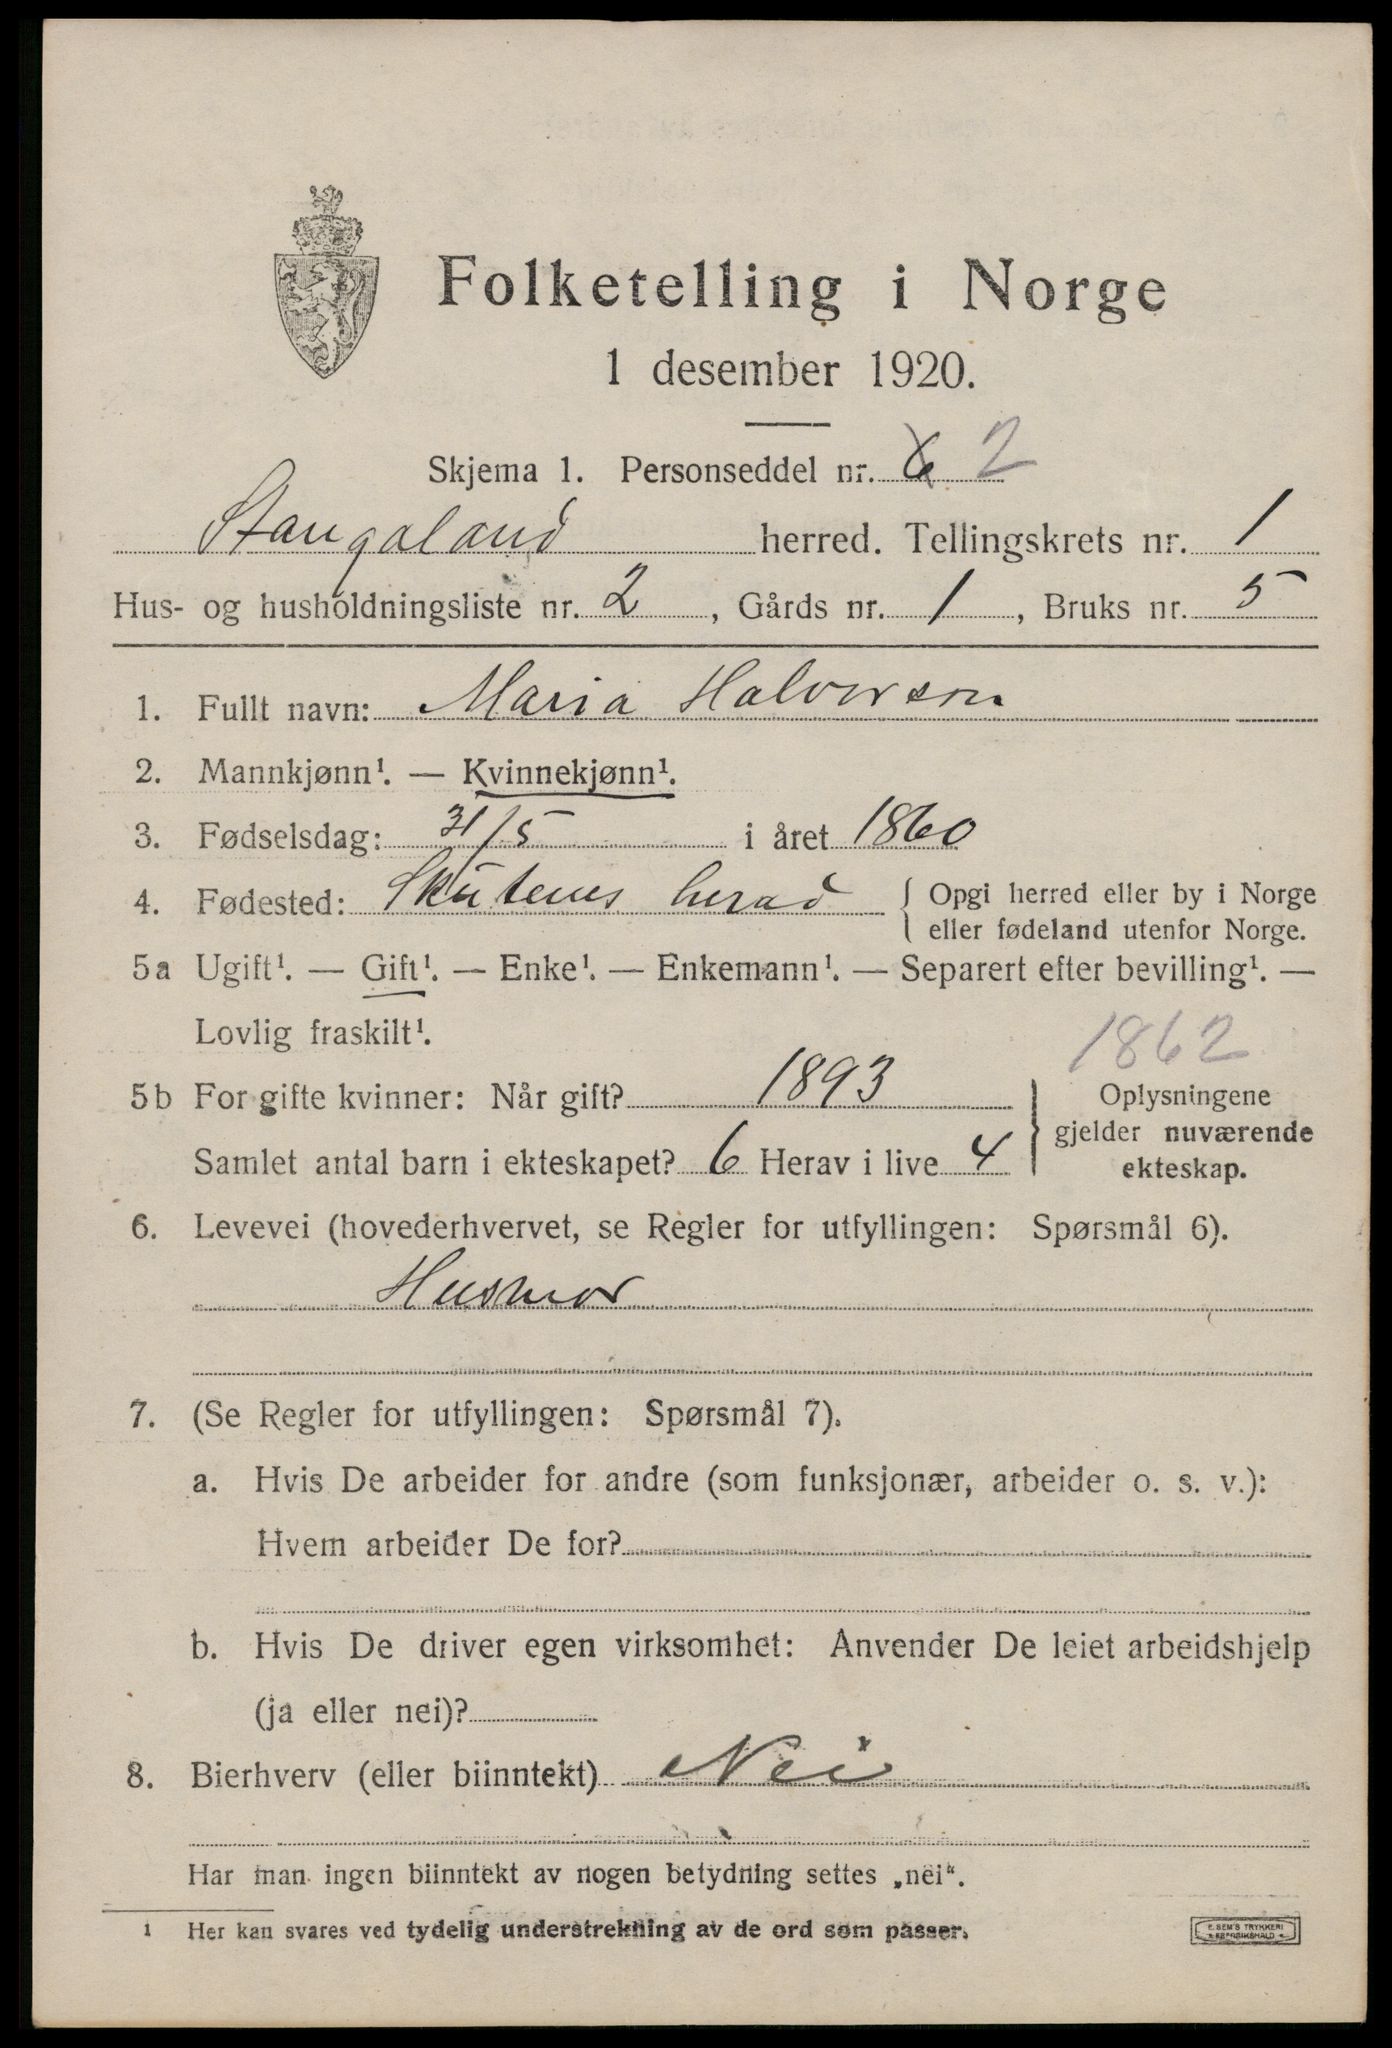 Folketelling i Norge
1 desember 1920.
Skjema 1. Personseddel nr. 6 2
Stangaland herred. Tellingskrets nr. 1
Hus- og husholdningsliste nr. 2, Gårds nr. 1, Bruks nr. 5
1. Fullt navn: Maria Halvorsen
2. Mannkjønn¹. — Kvinnekjønn¹.
3. Fødselsdag: 31/5 i året 1860
4. Fødested: Skutenes herad { Opgi herred eller by i Norge
eller fødeland utenfor Norge.
5a Ugift¹. — Gift¹. — Enke¹. — Enkemann¹. — Separert efter bevilling¹. —
Lovlig fraskilt¹.
1862
5b For gifte kvinner: Når gift? 1893
Samlet antal barn i ekteskapet? 6 Herav i live 4
} Oplysningene
gjelder nuværende
ekteskap.
6. Levevei (hovederhvervet, se Regler for utfyllingen: Spørsmål 6).
Husmor
7. (Se Regler for utfyllingen: Spørsmål 7).
a. Hvis De arbeider for andre (som funksjonær, arbeider o. s. v.):
Hvem arbeider De for?
b. Hvis De driver egen virksomhet: Anvender De leiet arbeidshjelp
(ja eller nei)?
8. Bierhverv (eller biinntekt) Nei
Har man ingen biinntekt av nogen betydning settes „nei“.
¹ Her kan svares ved tydelig understrekning av de ord som passer.
E. SEM'S TRYKKERI
FREDRIKSHALD